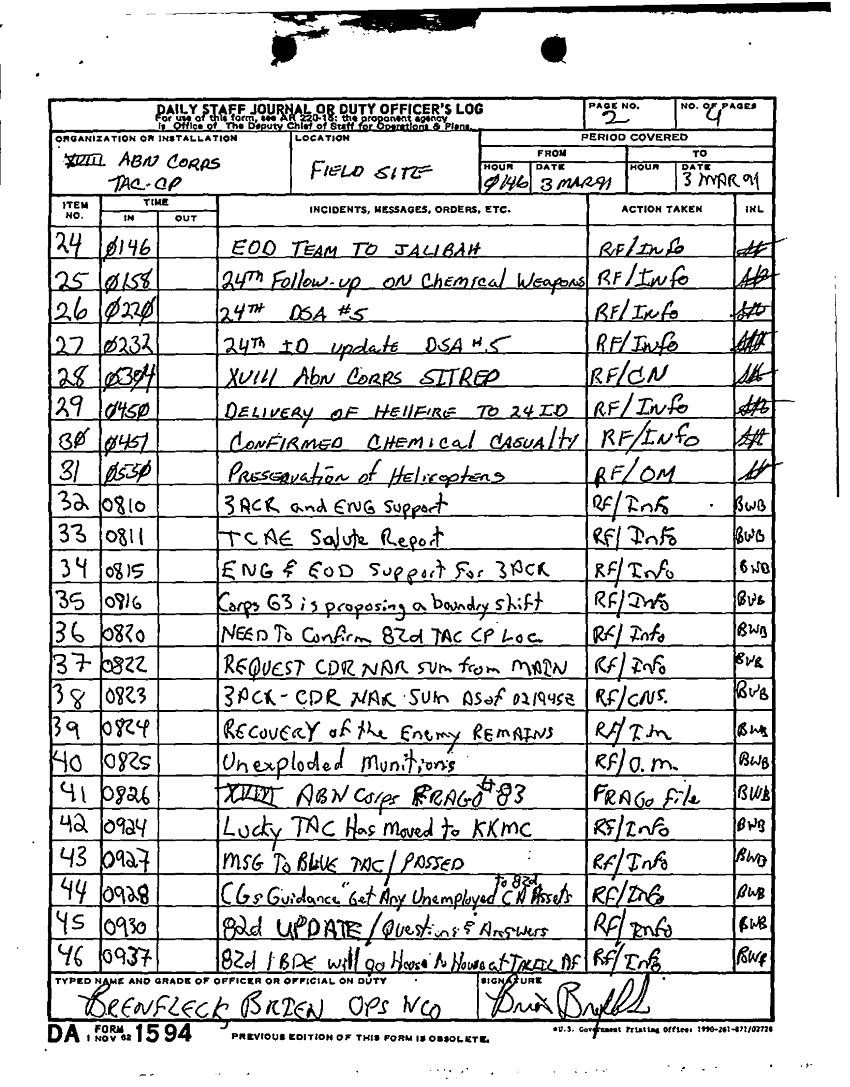 DAILY STAFF JOURNAL OR DUTY OFFICER'S LOG
For use of this form, see AR 220-15; the proponent agency
is Office of The Deputy Chief of Staff for Operations & Plans.
PAGE NO.
2
NO. OF PAGES
4
ORGANIZATION OR INSTALLATION
XVIII ABN CORPS
TAC-CP
LOCATION
FIELD SITE
PERIOD COVERED
FROM
TO
HOUR
0146
DATE
3 MAR 91
HOUR
DATE
3 MAR 91
ITEM NO.
TIME
IN
OUT
INCIDENTS, MESSAGES, ORDERS, ETC.
ACTION TAKEN
INL
24 0146 EOD TEAM TO JALIBAH RF/Info
25 0158 24TH Follow-up ON Chemical Weapons RF/Info
26 0220 24TH DSA #5 RF/Info
27 0232 24TH ID update DSA #5 RF/Info
28 0304 XVIII Abn CORPS SITREP RF/CN
29 0450 DELIVERY OF HELLFIRE TO 24 ID RF/Info
30 0451 CONFIRMED CHEMICAL CASUALTY RF/INFO
31 0530 PRESERVATION of Helicopters RF/OM
32 0810 3ACR and ENG Support RF/Info BWB
33 0811 TCAE Salute Report RF/Info BWB
34 0815 ENG & EOD Support For 3ACR RF/Info BWB
35 0816 Corps G3 is proposing a boundry shift RF/Info BWB
36 0820 NEED To Confirm 82d TAC CP Loc. RF/Info BWB
37 0822 REQUEST CDR NAR sum from MAIN RF/Info BWB
38 0823 3ACR-CDR NAR SUM AS of 021945Z RF/CNS. BWB
39 0824 RECOVERY of the Enemy REMAINS BWB
40 0825 Unexploded Munitions RF/O.M. BWB
41 0826 XVIII ABN Corps FRAGO #83 FRAGO File BWB
42 0924 Lucky TAC Has Moved to KKMC RF/Info BWB
43 0927 MSG To BLUE TAC/PASSED RF/Info BWB
44 0928 CGs Guidance "Get Any Unemployed to 82d CA Assets RF/Info BWB
45 0930 82d UPDATE/Questions & Answers RF/Info BWB
46 0937 82d 1 BDE will go House to House at AF RF/Info BWB
TYPED NAME AND GRADE OF OFFICER OR OFFICIAL ON DUTY
BRENFLECK BRIEN OPS NCO
SIGNATURE
DA FORM 1 NOV 62 1594
PREVIOUS EDITION OF THIS FORM IS OBSOLETE.
*U.S. Government Printing Office: 1990-261-871/02728